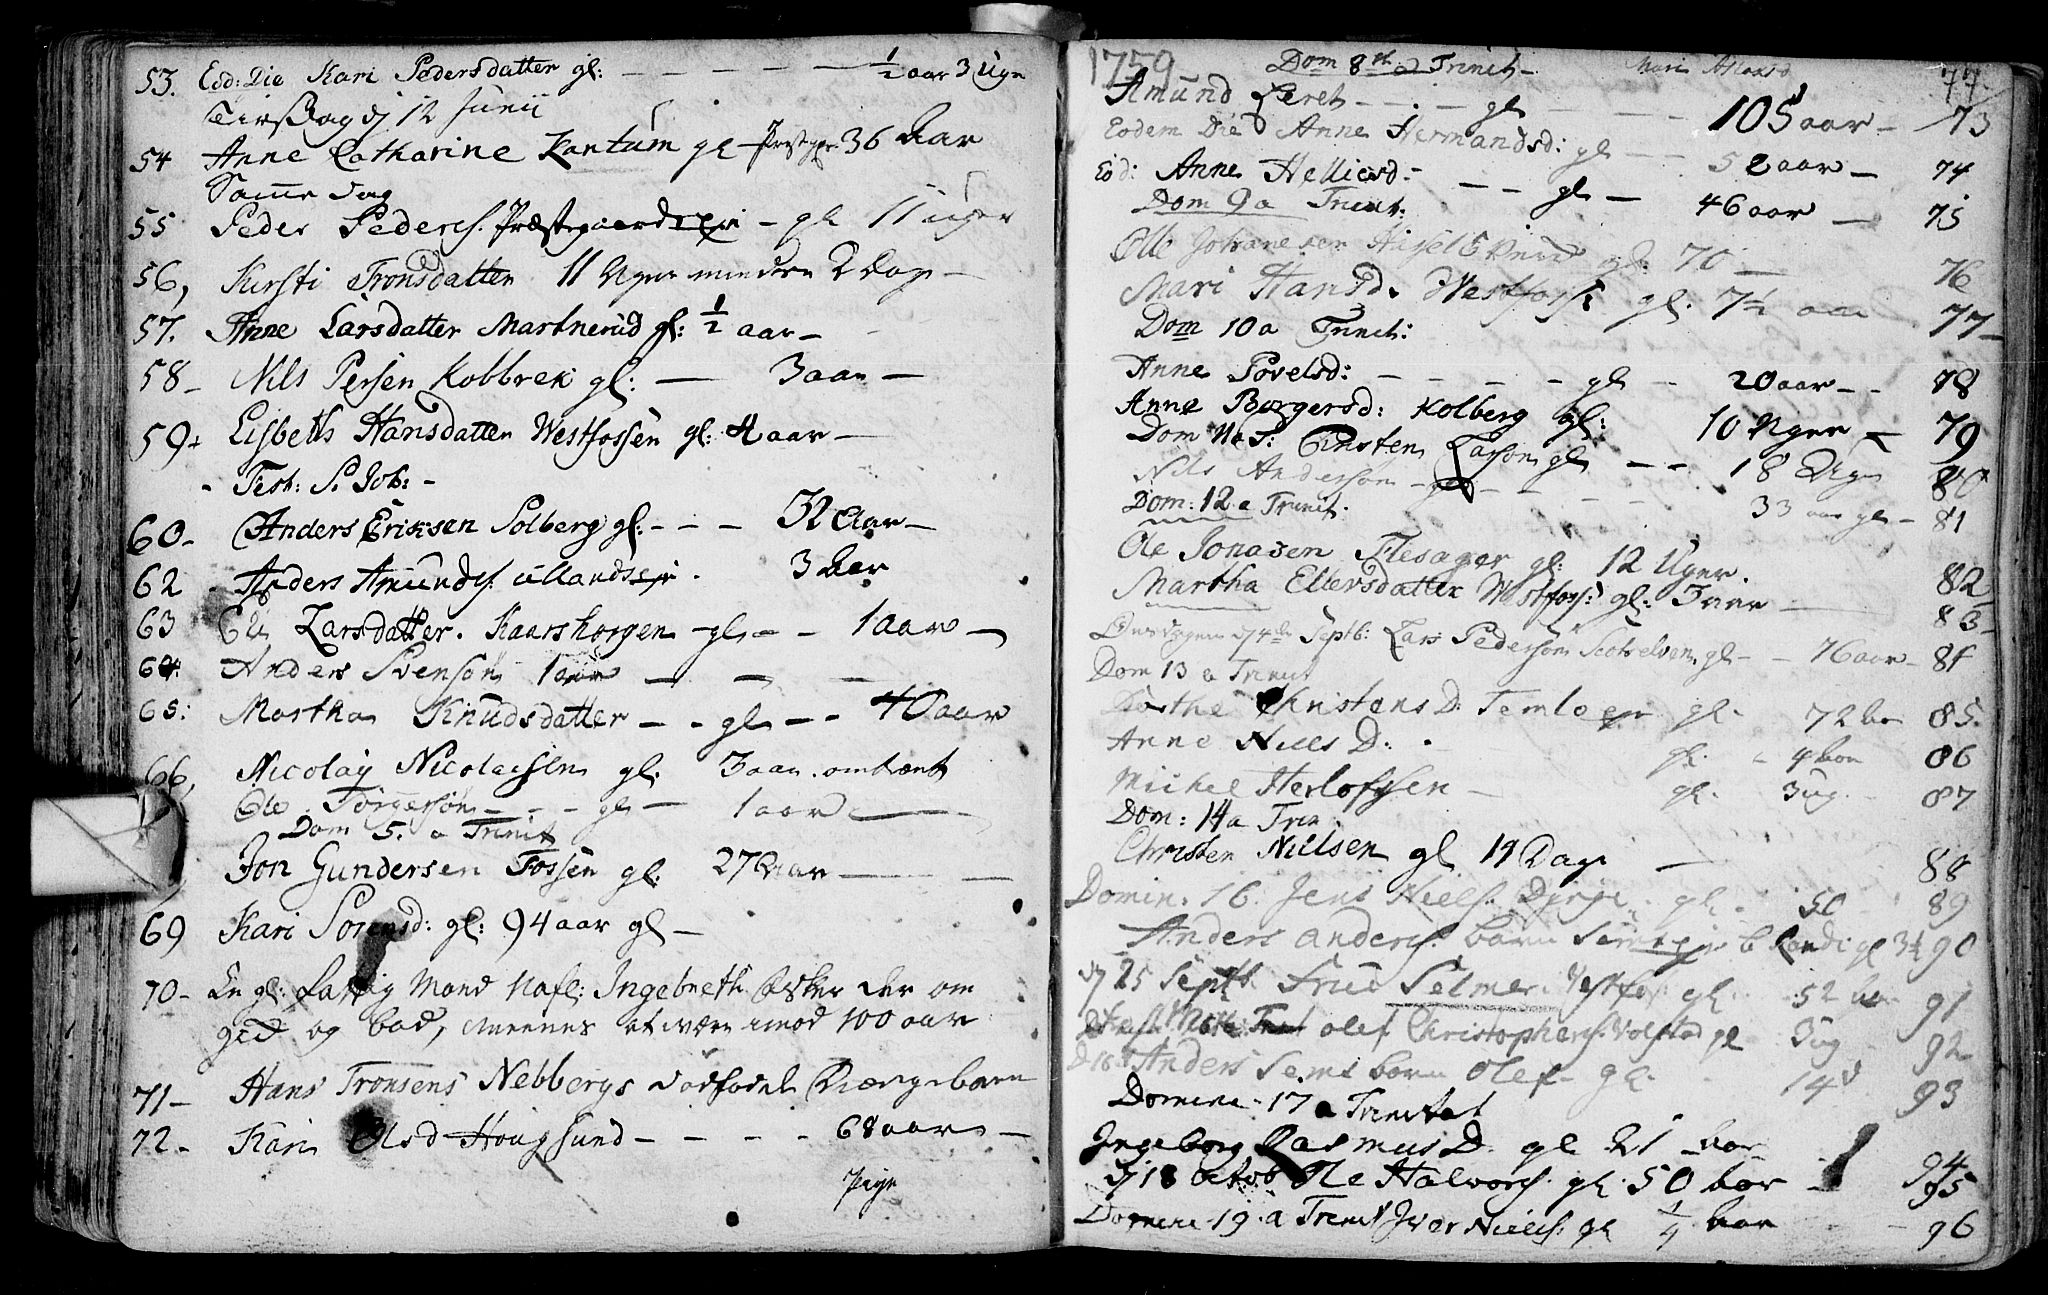 53. Eod: Die Kari Pedersdatter gl: — — — — ½ aar 3 Uge
Tirsdag dj 12 Junii
54 Anne Catharine Kantum gl — 36 Aar
Samme dag
55 Peder Peders. Præstegaardseye — gl 11 uger
56, Kirsti Tronsdatter 11 Uger mindre 2 dag —
57. Anne Larsdatter Martnerud gl: ½ aar —
58 — Nils Persen Kobbrek gl: — 3 aar —
59 + Lisbeth Hansdatter Westfossen gl: 4 aar —
Fest: S. Joh: —
60 — Anders Eriksen Solberg gl: — — — 32 Aar —
62 Anders Amunds. Ullandseje . 3 Aar
63 Eli Larsdatter. Kaarshorgen — gl — — 1 aar —
64: Anders Svenson 1 aar — — —
65: Martha Knudsdatter — — gl — — 40 aar
66, Nicolay Nicolaisen gl. 3 aar . omtrent
Ole Torgerson — — — gl — 1 aar —
Dom 5. a Trinit
Jon Gundersen Fossen gl: 27 Aar — —
69 Kari Sorensd: gl: 94 aar gl —
70 — En gl: fattig Mand Nafl: Ingebreth Asker der om
ged og bad, meenes at være imod 100 aar
71 — Hans Tronsens Nebbergs dødfødt Drængebarn
72 — Kari Olsd Hougsund — — — — 68 aar —
Pige
1759 Dom 8th a Trinit — Mari 77.
Amund — . — gl — — 105 aar — 73
Eodem Die Anne Hermandsd: gl — — 52 aar — 74
Eod: Anne Helliesd — — — gl — 46 aar — 75
Dom 9 a Trinit:
Olle Johanesen gl. 70 — 76
Mari Hansd. Westfoss: gl. 7½ aar 77 —
Dom 10 a Trinit:
Anne Povelsd: — — — — gl — 20 aar — — 78
Anne Borgersd: Kolberg gl: 10 Uger — 79
Dom 11 a T: Larson gl — — 18 Uger 80
Nils Anderson — — — — — — 33 aar gl — 81
Dom: 12 a Trinit.
Ole Jonasen Flesager gl: 12 Uger. 82
Martha Ellersdatter Westfoss: gl: 3 aar — 83
Onsdagen dj 4de Septb: Lars Pederson Scotselven gl — — 76 aar — 84
Dom 13 a Trinit
Christens D. Temloeje gl. 72 aar 85.
Anne Niels D: . gl. 4 aar 86
Michel Herlofssen — gl. 3 ug. 87
Dom: 14 a Trin.
Christen Nielsen gl 19 Dage — 88
Domin. 16. Jens Niels. gl. 50 89
Anders Anders. barn gl 3½ 90
dj 25 Septb. Frue Selmer Vestfos. gl. 52 aar 91
Olef Christophers. Volstad gl — 3 ug — 92
Anders Sems barn Olef — gl. 14 d 93
Domine — 17 a Trinitat
Ingeborg Rasmus D. gl 21 aar 94
dj 18 octob Ole Halvors. gl. 50 aar — 95
Domine 19. a Trinit Iver Niels. gl ¼ aar — 96